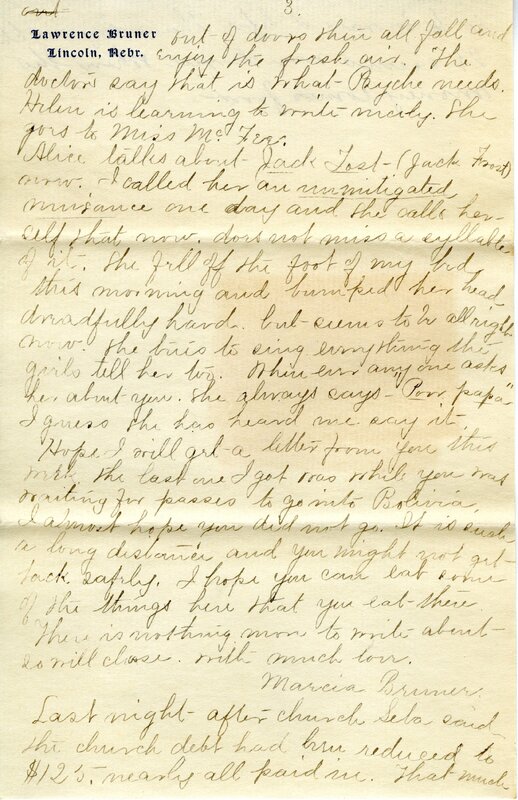 and 3.
Lawrence Bruner
Lincoln, Nebr.
out of doors then all fall and
enjoy the fresh air. The
doctors say that is what Psyche needs.
Helen is learning to write nicely. She
goes to Miss Mc Fee.
Alice talks about Jack Tost - (Jack Frost)
now. I called her an unmitigated
nuisance one day and she calls her-
self that now. does not miss a syllable
of it. She fell off the foot of my bed
this morning and bumped her head
dreadfully hard. but seems to be all right
now. She tries to sing everything the
girls tell her to. When ever any one asks
her about you. She always says - "Poor papa"
I guess she has heard me say it.
Hope I will get a letter from you this
week. the last one I got was while you was
waiting for passes to go into Bolivia.
I almost hope you did not go. It is such
a long distance and you might not get
back safely. I hope you can eat some
of the things here that you eat there.
There is nothing more to write about
so will close. with much love.
Marcia Bruner.
Last night after church Seba said
the church debt had been reduced to
$125. nearly all paid in. That much